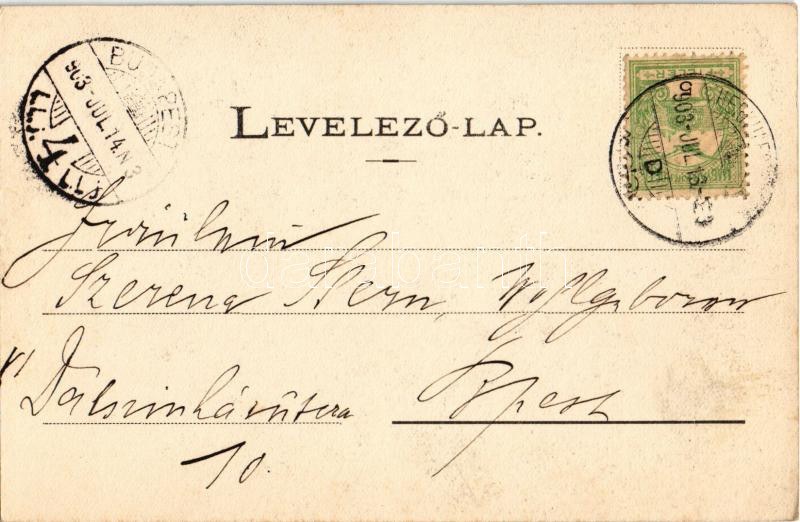 BUDAPEST
903 JUL. 14. N3
LEVELEZŐ-LAP.
903 JUL 13
D
Fräulein
Szerena Stern, Wohlgeboren
VI Dalszinház útcza Bpest
10.
darabanth